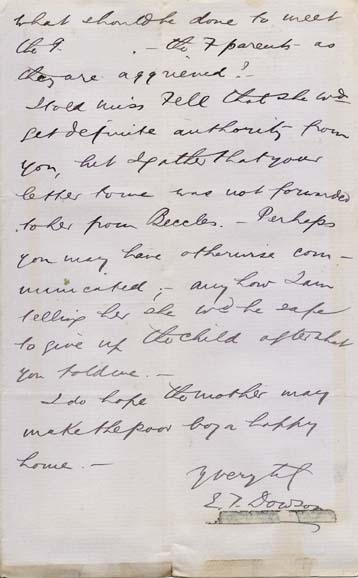 what should be done to meet
the 9. - the 7 parents - as
they are aggrieved? -
I told Miss Fell that she wd
get definite authority from
you, but I gather that your
letter to me was not forwarded
to her from Beccles. - Perhaps
you may have otherwise com-
municated; - anyhow I am
telling her she wd be safe
to give up the child after what
you told me. -
I do hope the mother may
make the poor boy a happy
home. -
Yrs very tly
E. T. Dowson